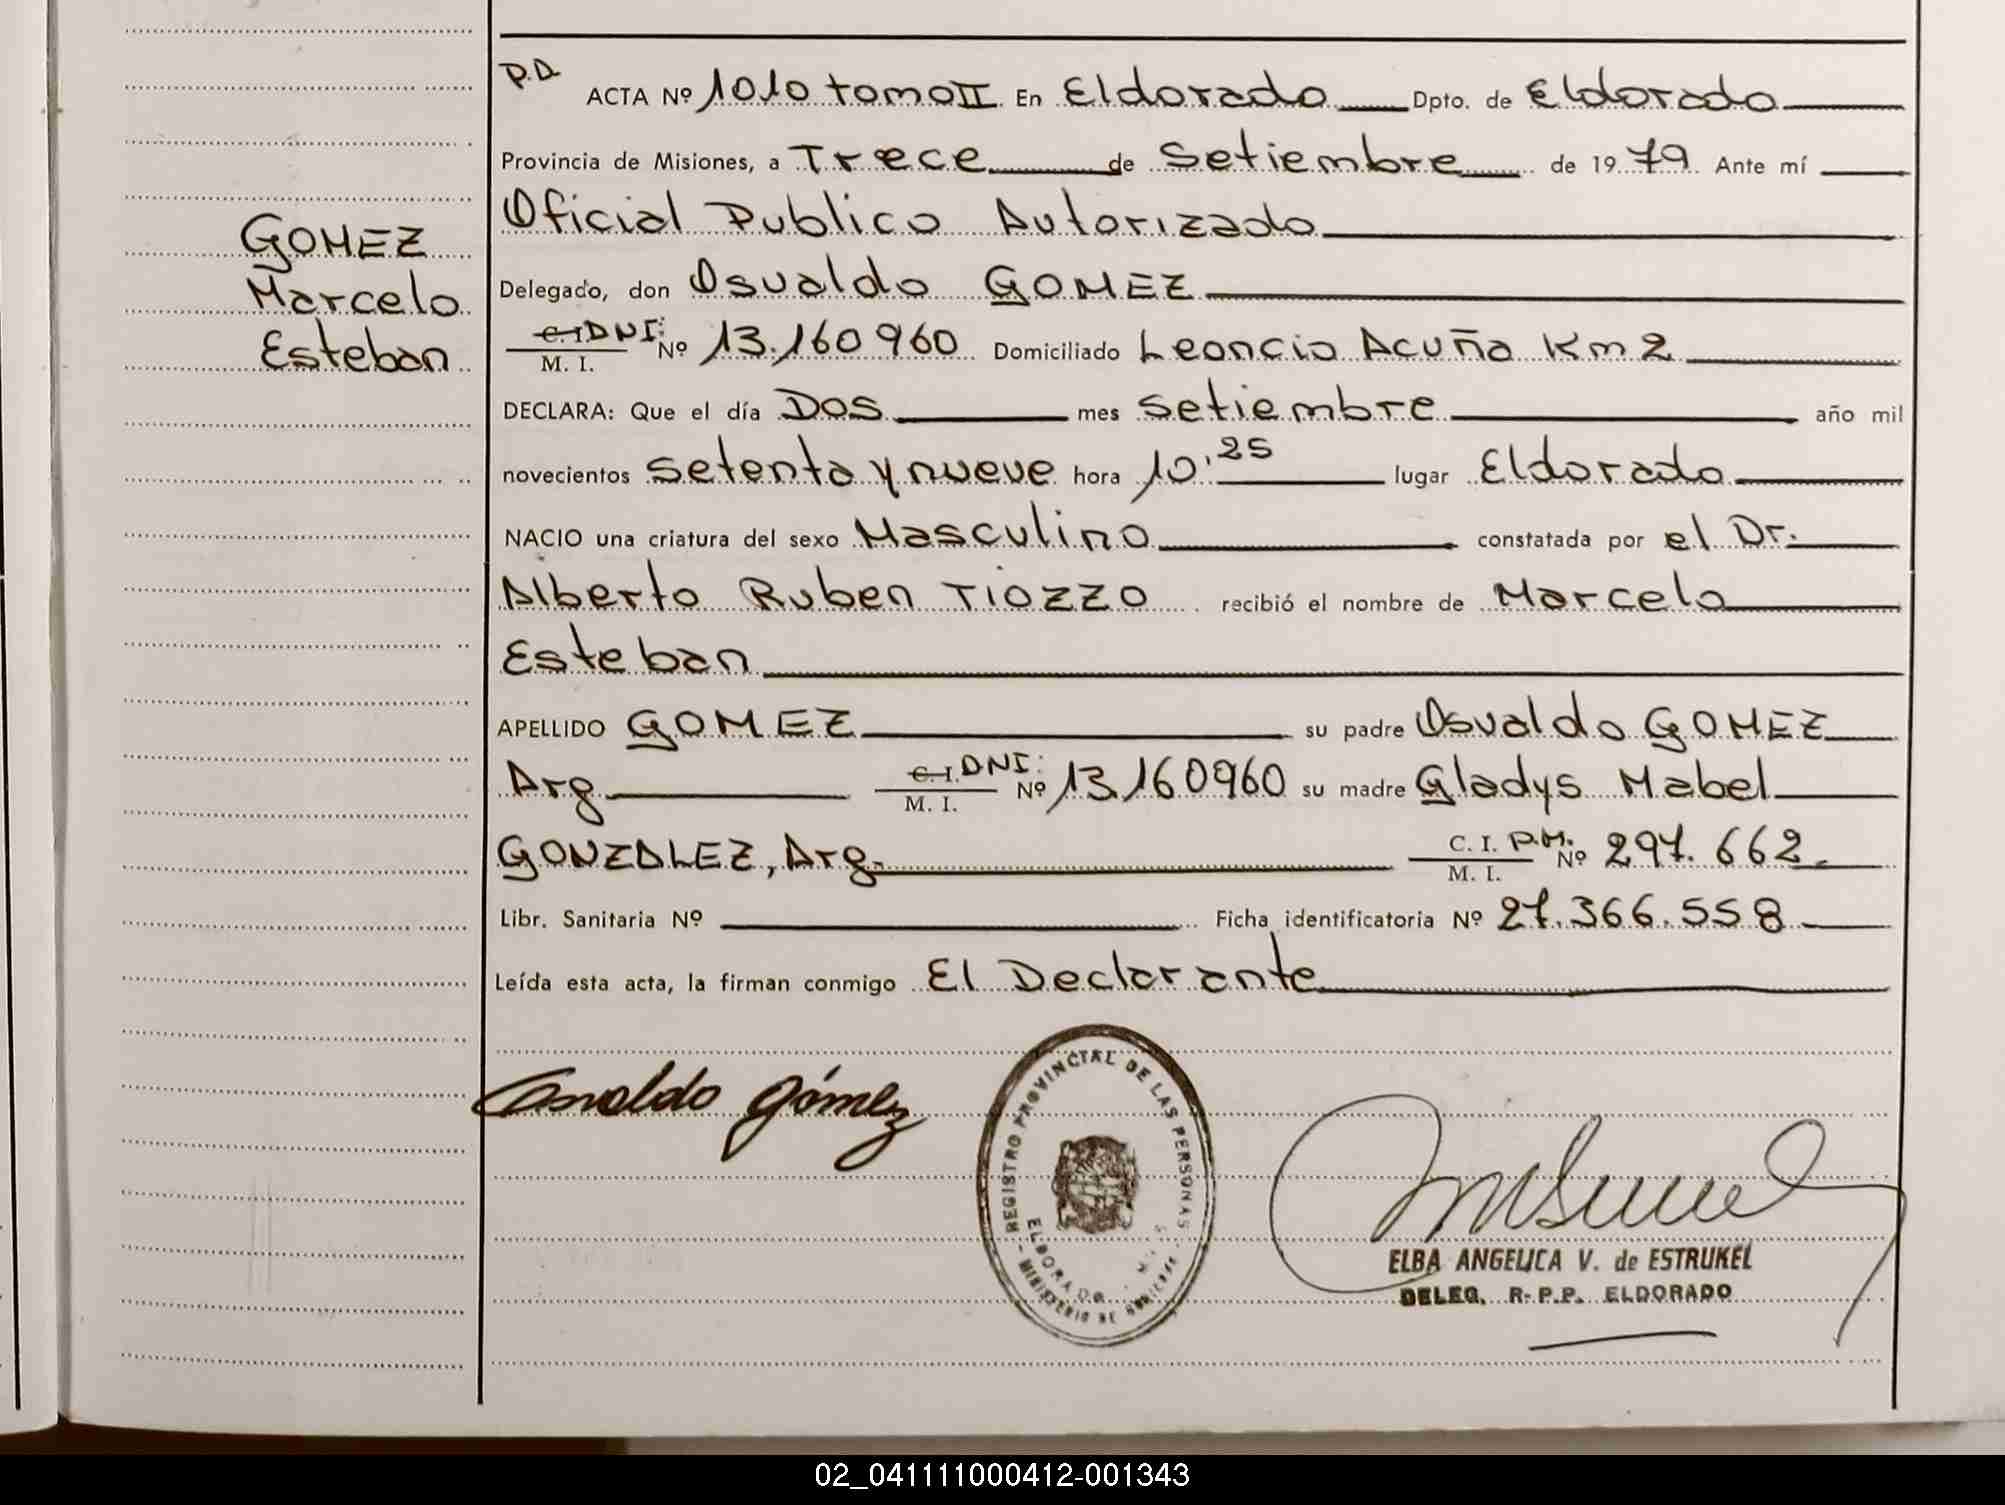 P.D ACTA Nº 1010 tomo II En Eldorado Dpto. de Eldorado
Provincia de Misiones, a Trece de Setiembre de 1979 Ante mí
Oficial Publico Autorizado
GOMEZ
Marcelo
Esteban
Delegado, don Osvaldo GOMEZ
C. I. DNI: M. I. Nº 13.160960 Domiciliado Leoncio Acuña Km 2
DECLARA: Que el día Dos mes Setiembre año mil
novecientos setenta y nueve hora 10,25 lugar Eldorado
NACIO una criatura del sexo Masculino constatada por el Dr.
Alberto Ruben TIOZZO recibió el nombre de Marcelo
Esteban
APELLIDO GOMEZ su padre Osvaldo GOMEZ
Arg C. I. DNI: M. I. Nº 13.160960 su madre Gladys Mabel
GONZALEZ, Arg. C. I. P.M. M. I. Nº 297.662.
Libr. Sanitaria Nº Ficha identificatoria Nº 27.366.558
Leída esta acta, la firman conmigo El Declarante
Osvaldo Gómez
REGISTRO PROVINCIAL DE LAS PERSONAS
ELDORADO
MINISTERIO DE
ELBA ANGELICA V. de ESTRUKEL
DELEG. R. P.P. ELDORADO
02_041111000412-001343